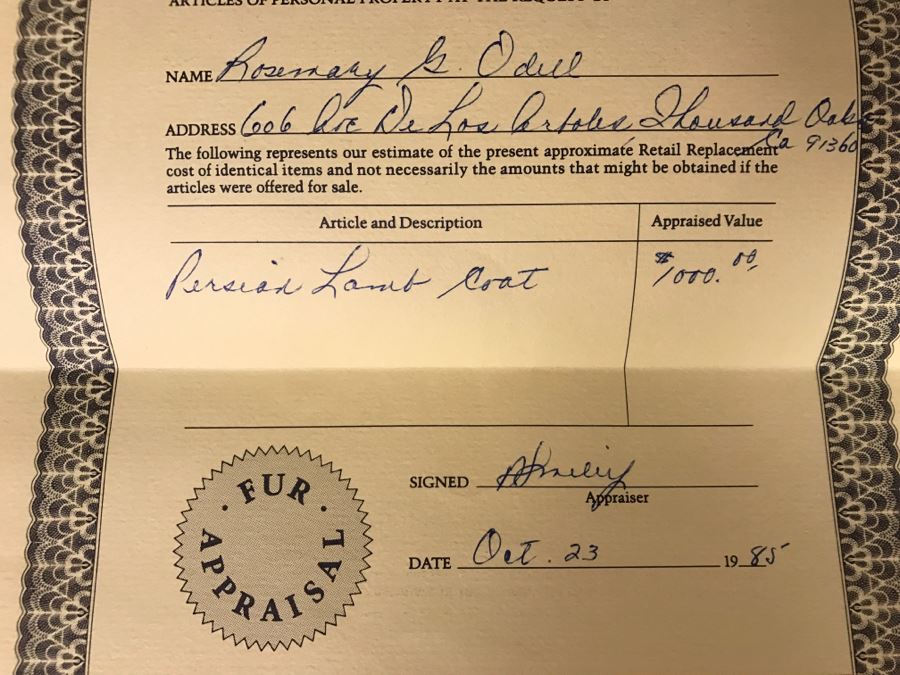 ARTICLES OF PERSONAL PROPERTY AT THE REQUEST OF
NAME Rosemary G. Odell
ADDRESS 606 Ave De Los Arboles Thousand Oaks
Ca 91360
The following represents our estimate of the present approximate Retail Replacement
cost of identical items and not necessarily the amounts that might be obtained if the
articles were offered for sale.
Article and Description Appraised Value
Persian Lamb Coat $1000.00
FUR APPRAISAL
SIGNED
Appraiser
DATE Oct. 23 1985